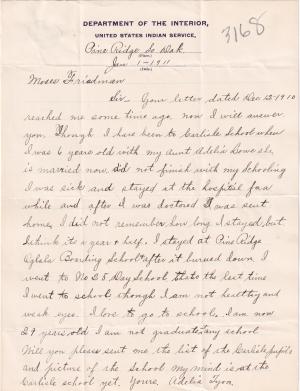 DEPARTMENT OF THE INTERIOR,
UNITED STATES INDIAN SERVICE,
3168
Pine Ridge So Dak
(Place)
Jan 1 - 1911
(Date)
Moses Friedman
Sir. Your letter dated Dec 12-1910
reached me some time ago, now I will answer
you. Though I have been to Carlisle School when
I was 6 years old with my aunt Adelia Lowe she
is married now. did not finish with my schooling
I was sick and stayed at the hospital for a
while and after I was doctored I was sent
home, I did not remember how long I stayed, but
I think its a year & half. I stayed at Pine Ridge
Oglala Boarding School after it burned down I
went to No 25 Day School thats the last time
I went to school, though I am not healthy and
weak eyes. I love to go to school, I am now
29 years old I am not graduate any school
Will you please sent me the list of the Carlisle pupils
and picture of the School my mind is at the
Carlisle school yet. Yours, Adelia Lyon.